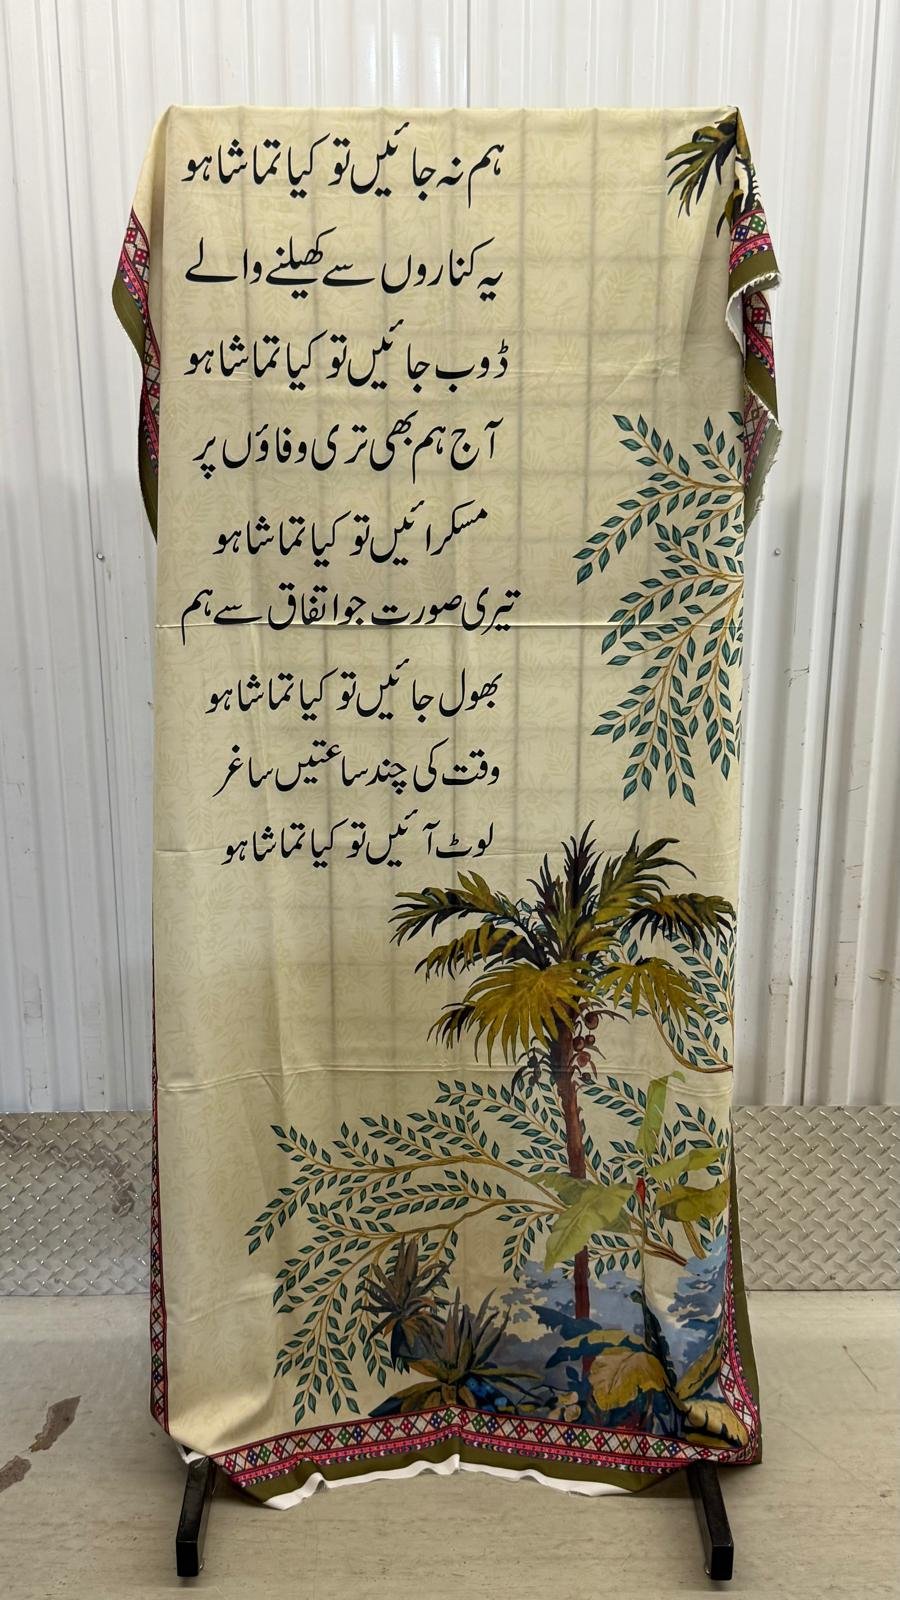 ہم نہ جائیں تو کیا تماشا ہو
یہ کناروں سے کھیلنے والے
ڈوب جائیں تو کیا تماشا ہو
آج ہم بھی تری وفاؤں پر
مسکرائیں تو کیا تماشا ہو
تیری صورت جو اتفاق سے ہم
بھول جائیں تو کیا تماشا ہو
وقت کی چند ساعتیں ساغر
لوٹ آئیں تو کیا تماشا ہو